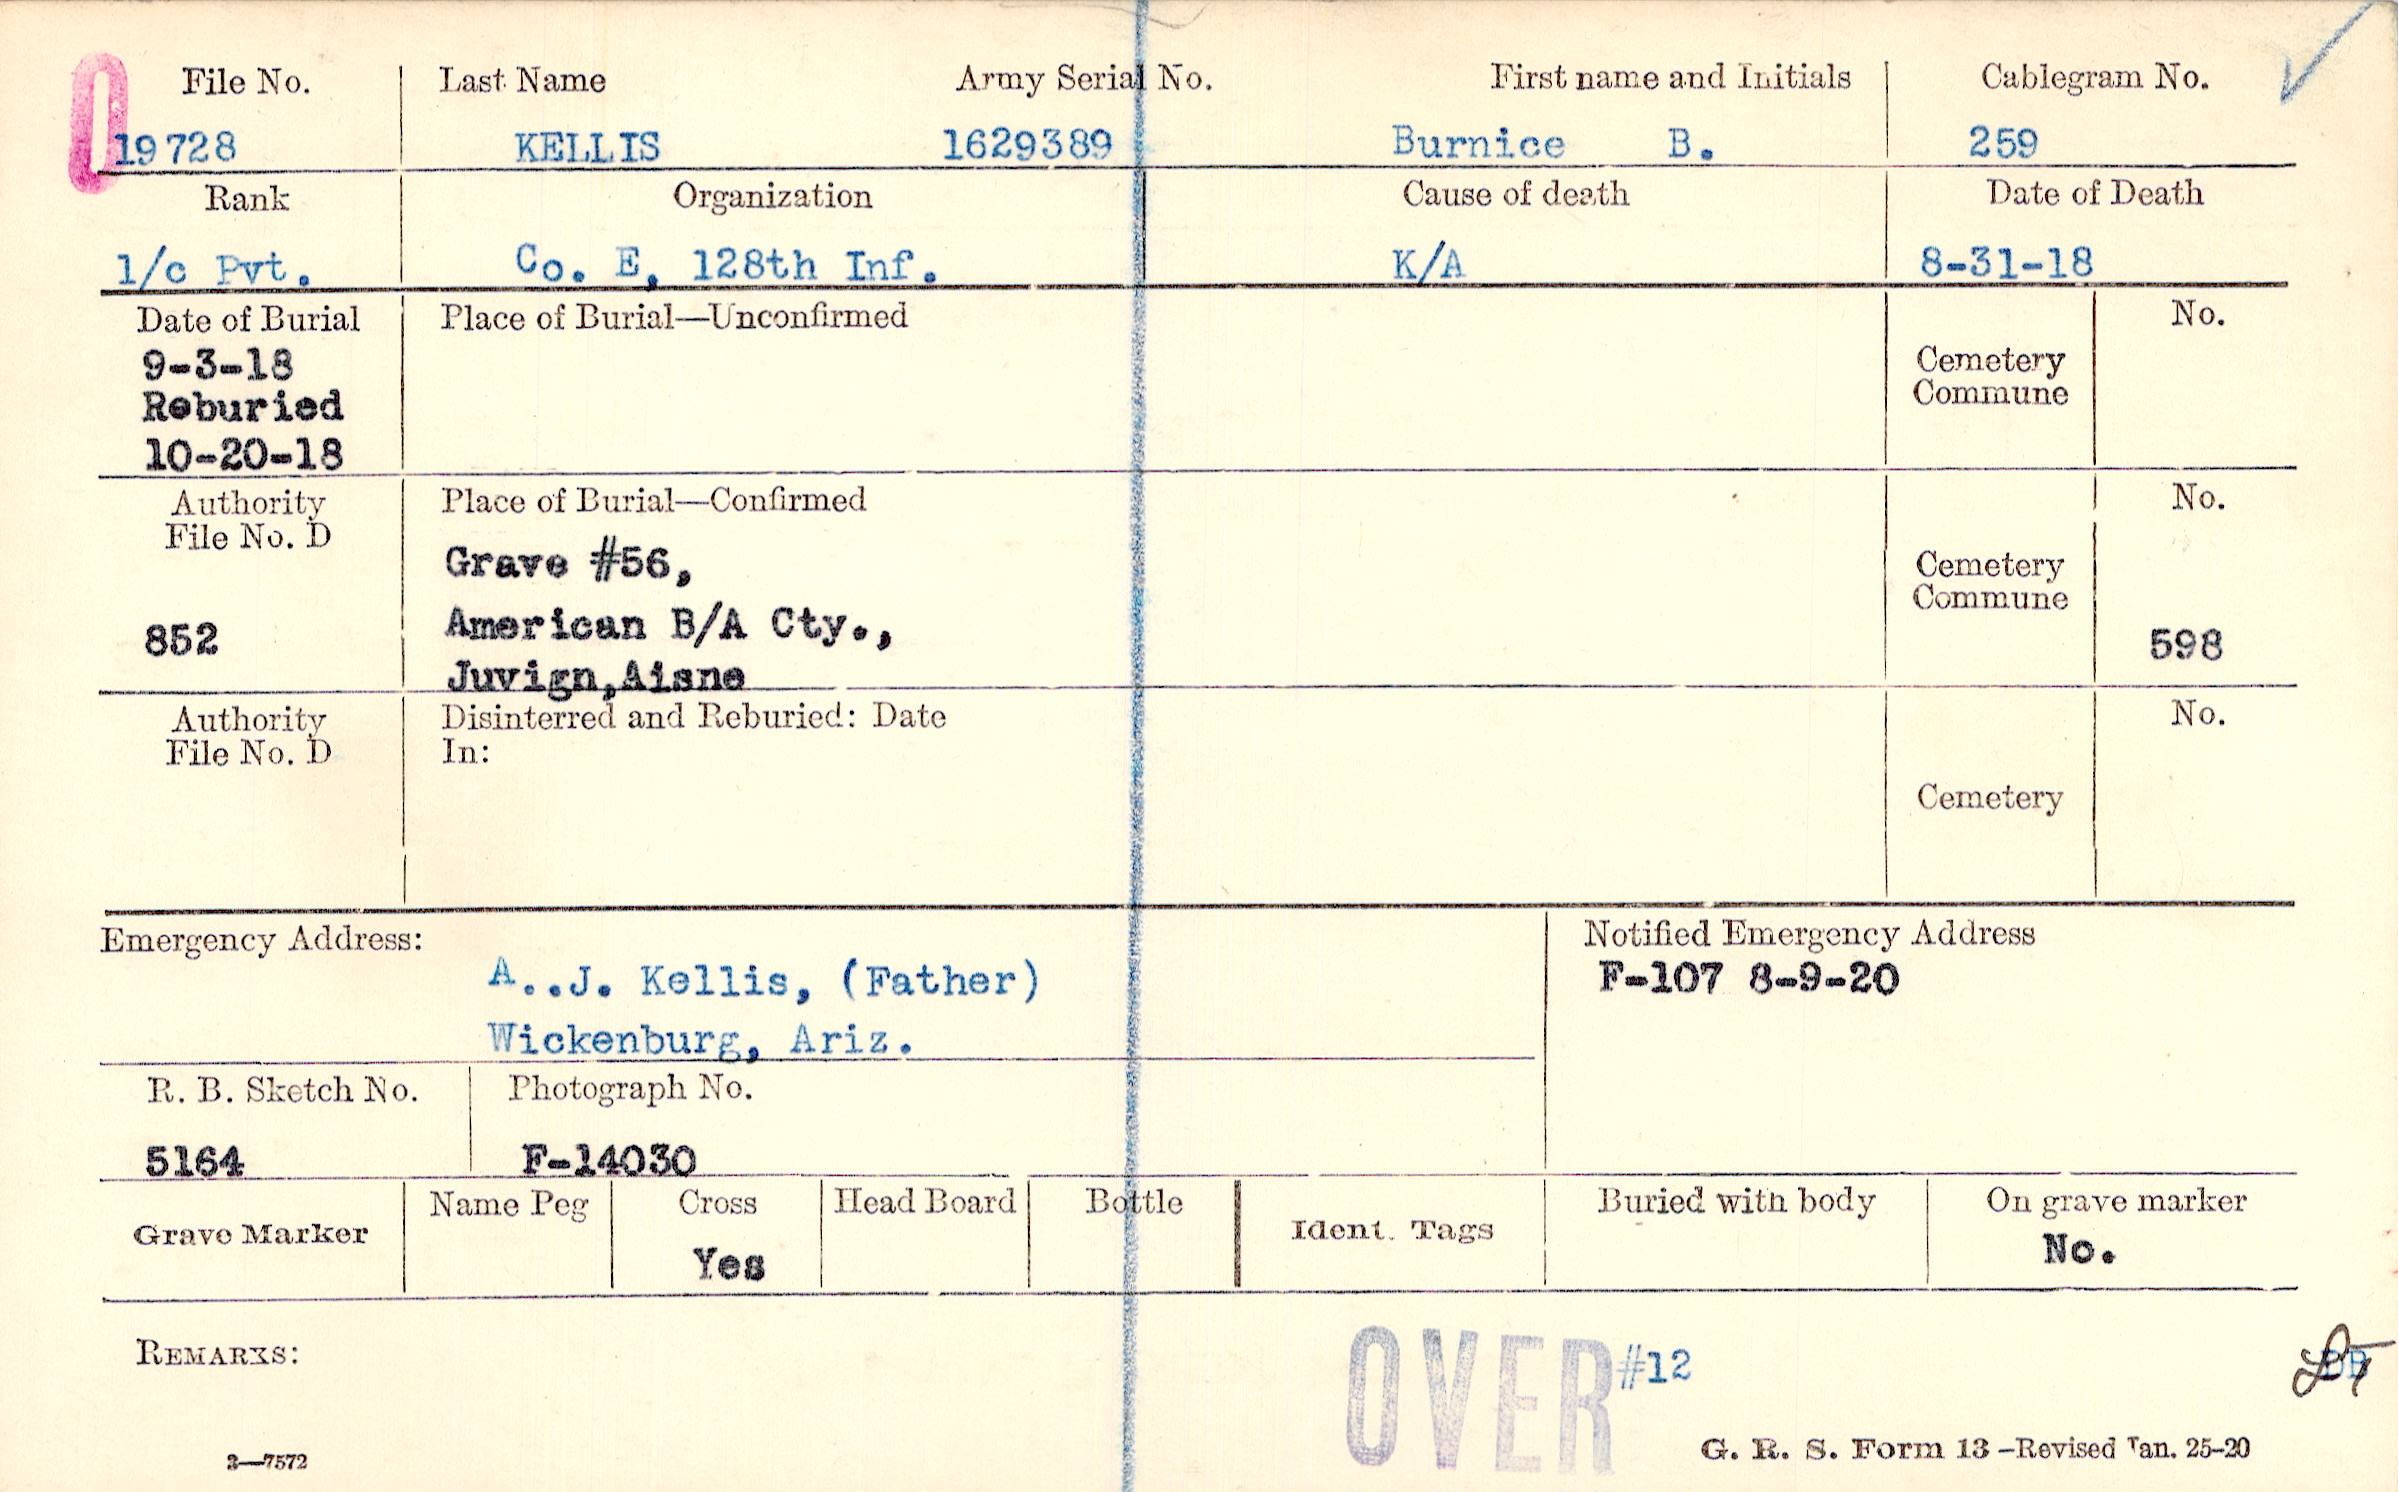 0
File No. Last Name Army Serial No. First name and Initials Cablegram No.
19728 KELLIS 1629389 Burnice B. 259
Rank Organization Cause of death Date of Death
1/c Pvt. Co. E, 128th Inf. K/A 8-31-18
Date of Burial Place of Burial—Unconfirmed No.
9-3-18
Reburied
10-20-18
Cemetery
Commune
Authority Place of Burial—Confirmed No.
File No. D
Grave #56,
American B/A Cty.,
Juvign,Aisne
852
Cemetery
Commune
598
Authority Disinterred and Reburied: Date No.
File No. D In:
Cemetery
Emergency Address: Notified Emergency Address
F-107 8-9-20
A..J. Kellis, (Father)
Wickenburg, Ariz.
R. B. Sketch No. Photograph No.
5164 F-14030
Grave Marker Name Peg Cross Head Board Bottle Ident. Tags Buried with body On grave marker
Yes No.
REMARKS:
OVER #12
2—7572
G. R. S. Form 13 –Revised Jan. 25-20